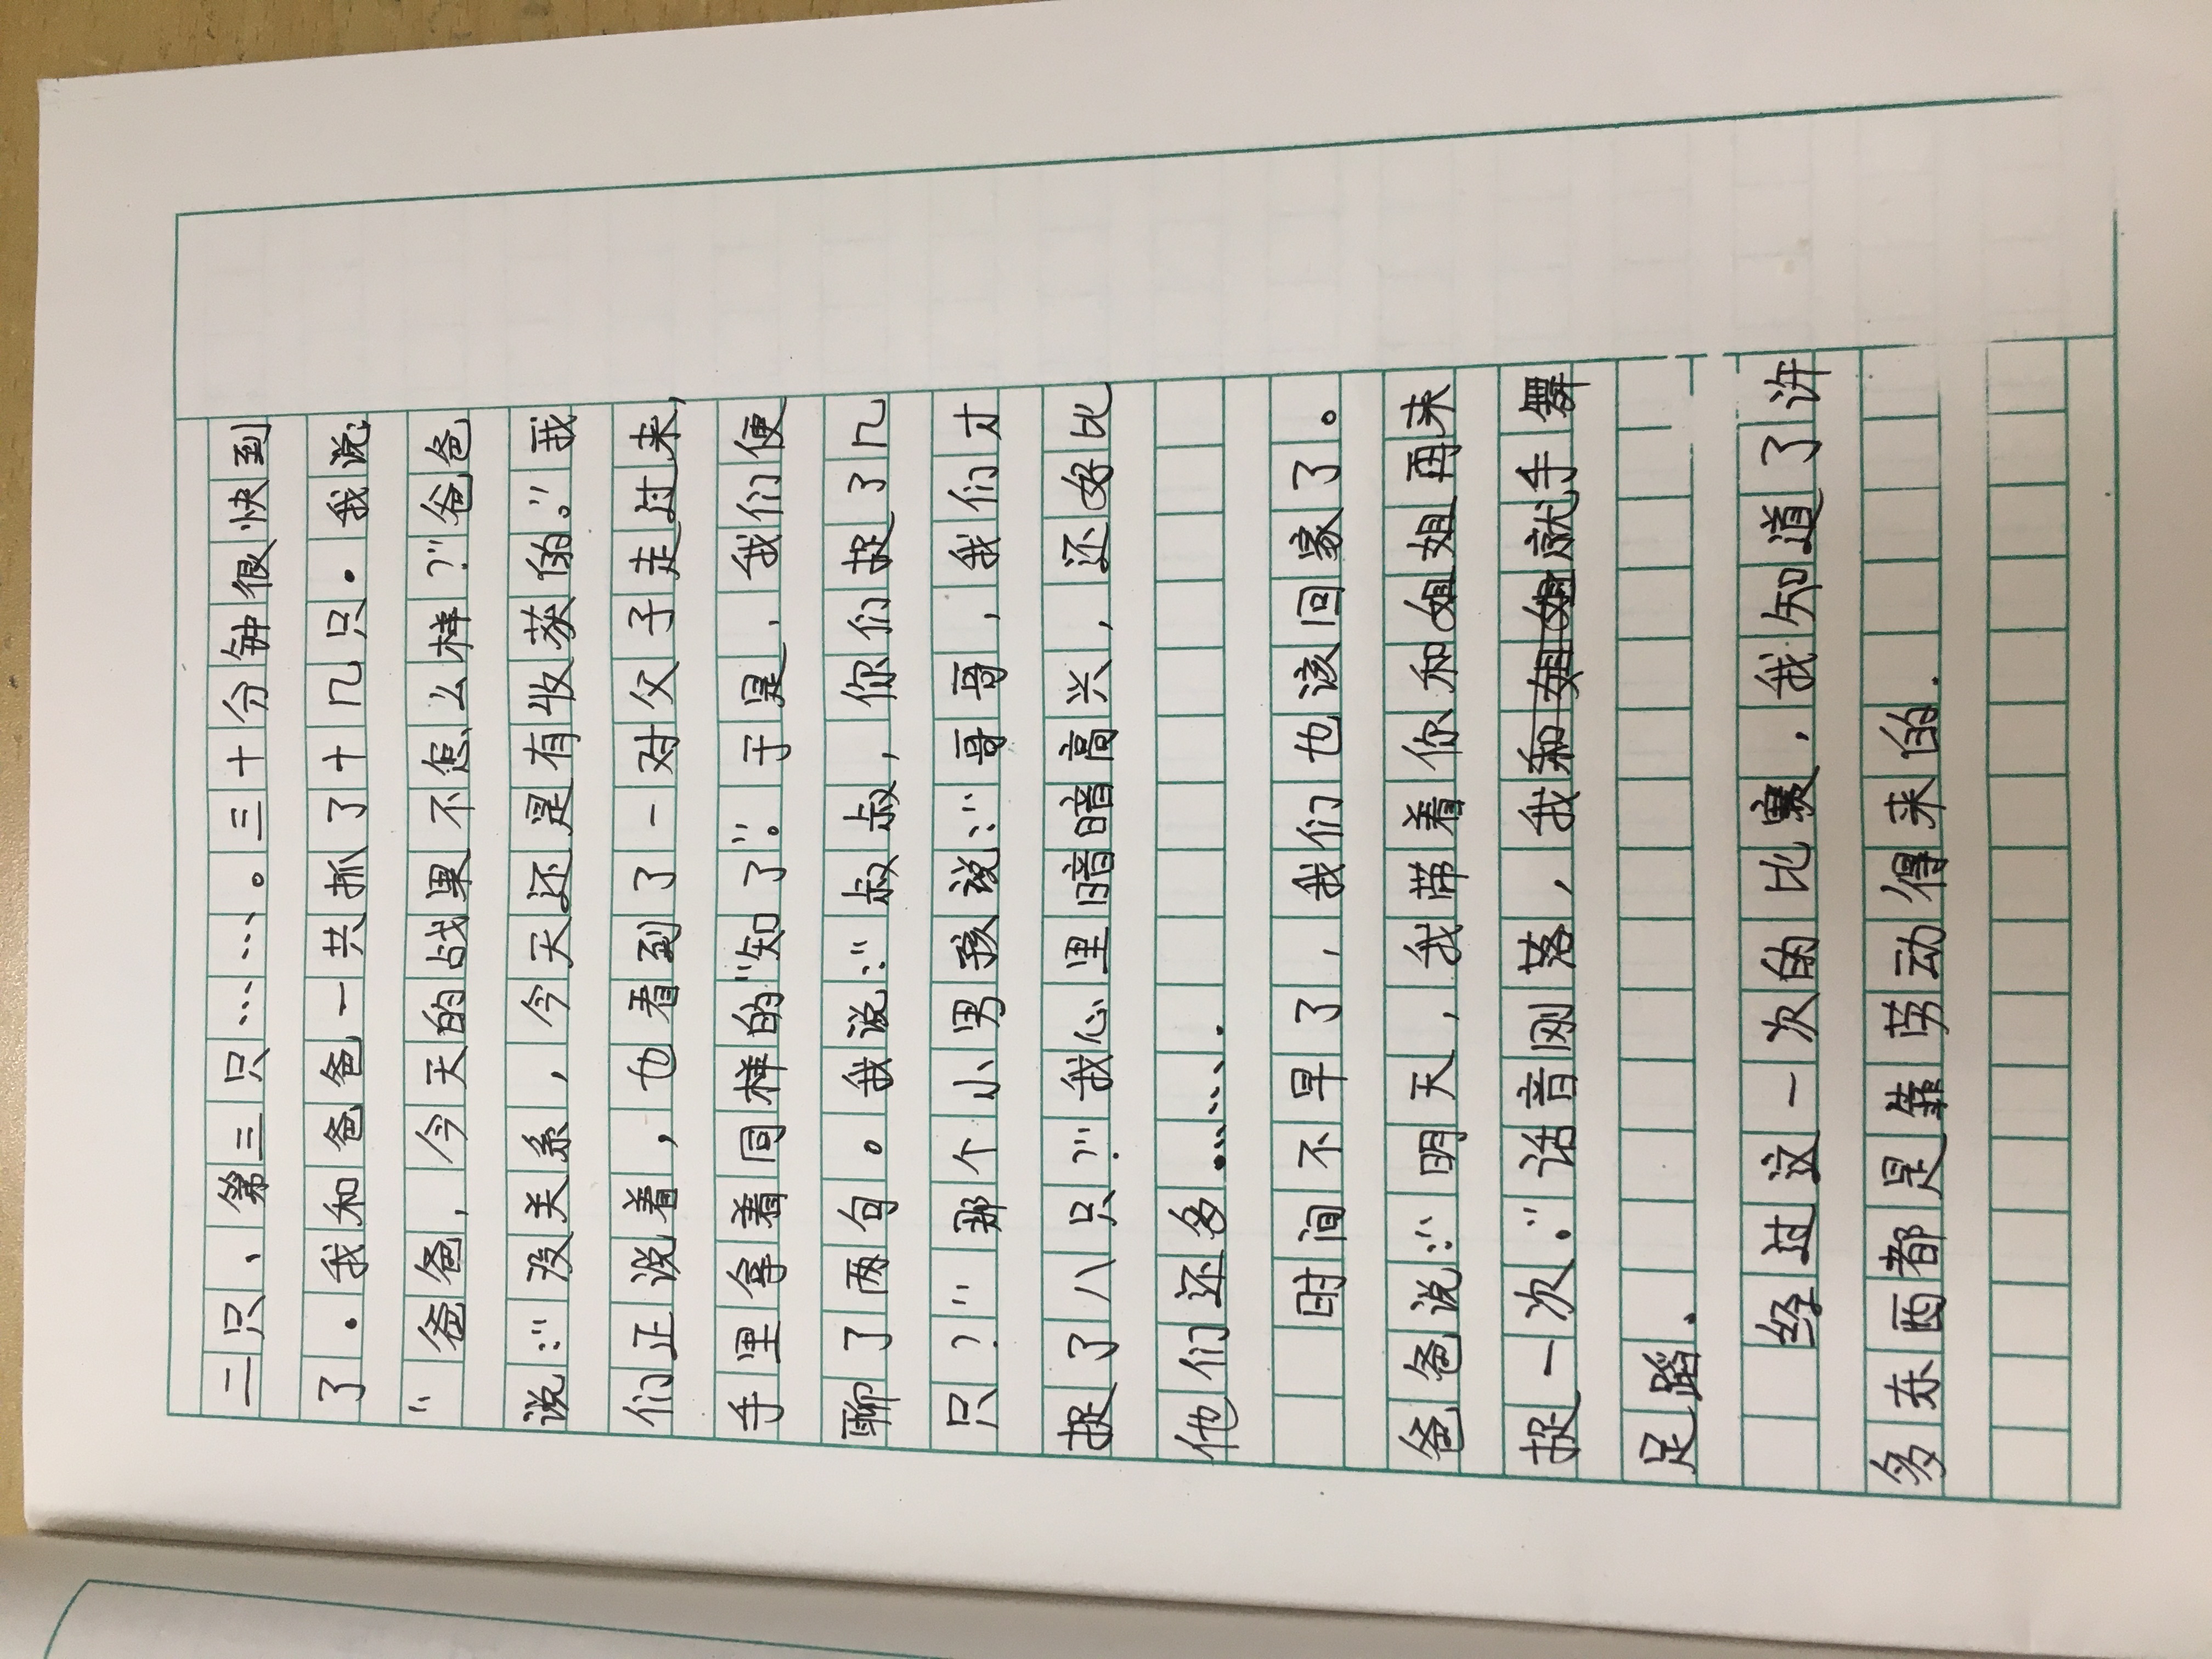 二只、第三只……。三十分钟很快到
了.我和爸爸一共抓了十几只.我说
“爸爸,今天的战果不怎么样?”爸爸
说:“没关系,今天还是有收获的。”我
们正说着,也看到了一对父子走过来,
手里拿着同样的“知了”。于是,我们便
聊了两句。我说:“叔叔,你们捉了几
只?”那个小男孩说:“哥哥,我们才
捉了八只?”我心里暗暗高兴,还好比
他们还多…….
时间不早了,我们也该回家了。
爸爸说:“明天,我带着你和姐姐再来
捉一次.”话音刚落,我就手舞
足蹈.
经过这一次的比赛,我知道了许
多东西都是靠劳动得来的.